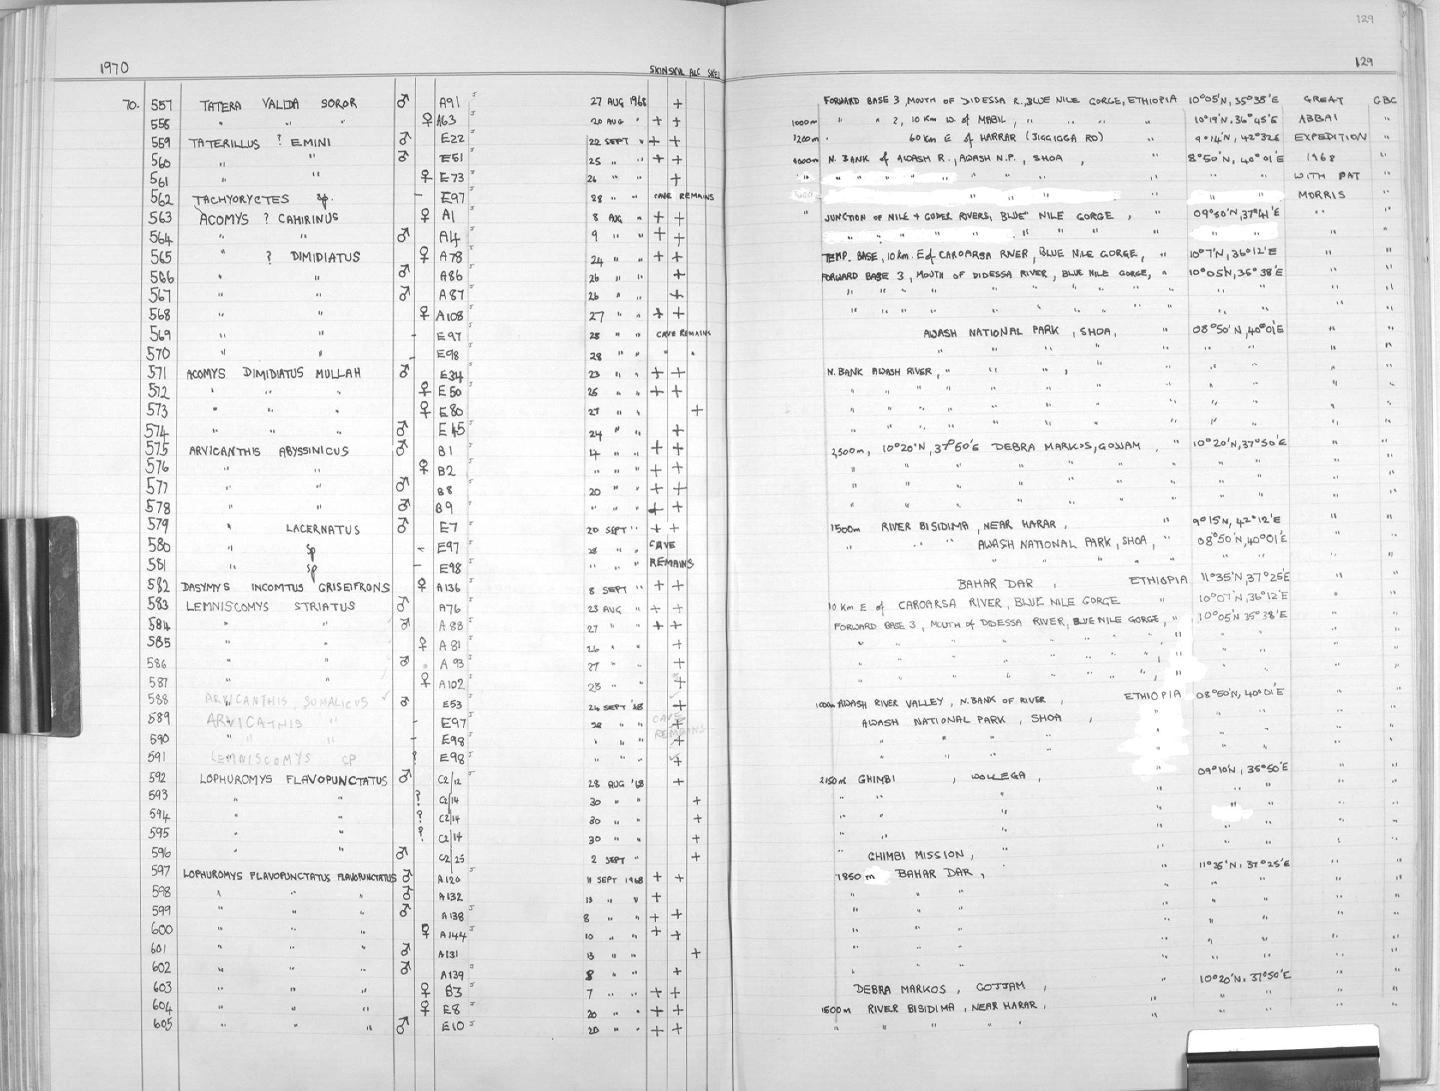 129
1970 SKIN SKUL ALC SKEL 129
70. 557 TATERA VALIDA SOROR ♂ A91 27 AUG 1968 + FORWARD BASE 3, MOUTH OF DIDESSA R., BLUE NILE GORGE, ETHIOPIA 10°05'N, 35°38'E GREAT GBC
558 " " " ♀ A63 20 AUG " + + 1000m " " 2, 10 KM W OF MABIL, " " " " 10°19'N, 36°45'E ABBAI "
559 TATERILLUS ? EMINI ♂ E22 22 SEPT " + + 1200m 60 KM E OF HARRAR (JIGGIGGA RD) " 9°14'N, 42°32'E EXPEDITION "
560 " " ♂ E51 25 " " + + 1000m N. BANK of AWASH R., AWASH N.P., SHOA , " 8°50'N, 40°01'E 1968 "
561 " " ♀ E73 26 " " + " " " " " " WITH PAT "
562 TACHYORYCTES sp. - E97 28 " " CAVE REMAINS " " " " " " MORRIS "
563 ACOMYS ? CAHIRINUS ♀ A1 8 AUG " + + " JUNCTION OF NILE + GUDER RIVERS, BLUE NILE GORGE , " 09°50'N, 37°41'E " "
564 " " ♂ A4 9 " " + + " " " " " " " " " " "
565 " ? DIMIDIATUS ♀ A78 24 " " + + TEMP. BASE, 10 km. E of CAROARSA RIVER, BLUE NILE GORGE, " 10°7'N, 36°12'E " "
566 " " ♂ A86 26 " " + FORWARD BASE 3, MOUTH OF DIDESSA RIVER, BLUE NILE GORGE, " 10°05'N, 35°38'E " "
567 " " ♂ A87 26 " " + " " " " " " " " " " "
568 " " ♀ A108 27 " " + + " " " " " " " " "
569 " " - E97 28 " " CAVE REMAINS AWASH NATIONAL PARK, SHOA, " 08°50'N, 40°01'E " "
570 " " - E98 28 " " " " " " " " " " " " "
571 ACOMYS DIMIDIATUS MULLAH ♂ E34 23 " " + + N. BANK AWASH RIVER, " " , " " " " "
572 " " " ♀ E50 25 " " + + " " " " " " " " " "
573 " " " ♀ E80 27 " " + " " " " " " " " " "
574 " " " ♂ E45 24 " " + " " " " " " " " " "
575 ARVICANTHIS ABYSSINICUS ♂ B1 14 " " + + 2,500m, 10°20'N, 37°50'E DEBRA MARKOS, GOJJAM, " 10°20'N, 37°50'E " "
576 " " ♀ B2 " " " + + " " " " " " " "
577 " " ♂ B8 20 " " + + " " " " " " " "
578 " " ♂ B9 " " " + + " " " " " " " "
579 " LACERNATUS ♂ E7 20 SEPT " + + 1500m RIVER BISIDIMA, NEAR HARAR, " 9°15'N, 42°12'E " "
580 " sp - E97 28 " " CAVE " " " AWASH NATIONAL PARK, SHOA, " 08°50'N, 40°01'E " "
581 " sp - E98 " " " REMAINS
582 DASYMYS INCOMTUS GRISEIFRONS ♀ A136 8 SEPT " + + BAHAR DAR , ETHIOPIA 11°35'N, 37°25'E " "
583 LEMNISCOMYS STRIATUS ♂ A76 23 AUG " + + 10 KM E of CAROARSA RIVER, BLUE NILE GORGE " 10°07'N, 36°12'E " "
584 " " ♂ A88 27 " " + + FORWARD BASE 3, MOUTH OF DIDESSA RIVER, BLUE NILE GORGE, " 10°05'N 35°38'E " "
585 " " ♀ A81 26 " " + " " " " " " " " "
586 " " ♂ A93 27 " " + " " " " " " " " "
587 " " ♀ A102 25 " " + " " " " " " " " "
588 ARVICANTHIS SOMALICUS ✓ ♂ E53 24 SEPT '68 + 1000m AWASH RIVER VALLEY, N. BANK OF RIVER, ETHIOPIA 08°50'N, 40°01'E " "
589 ARVICATHIS " - E97 28 " " CAVE + AWASH NATIONAL PARK, SHOA , " " "
590 " " - E98 " " " REMAINS + " " " " " "
591 LEMNISCOMYS SP ? E98 " " " + " " " " " "
592 LOPHUROMYS FLAVOPUNCTATUS ♂ C2/12 28 AUG '68 + 2150m GHIMBI , WOLLEGA , 09°10'N, 35°50'E " "
593 " " ? C2/14 30 " " + " " " " " " "
594 " " ? C2/14 30 " " + " " " " " "
595 " " ? C2/14 30 " " + " " " " " "
596 " " ♂ C2/25 2 SEPT " + GHIMBI MISSION, " " " "
597 LOPHUROMYS FLAVOPUNCTATUS FLAVOPUNCTATUS ♂ A120 11 SEPT 1968 + + 1850 m BAHAR DAR, 11°35'N, 37°25'E " "
598 " " " ♂ A132 13 " " + " " " " " " "
599 " " " ♂ A138 8 " " + + " " " " " " "
600 " " " ♀ A144 10 " " + + " " " " " " "
601 " " " ♂ A131 13 " " + " " " " " " "
602 " " " ♂ A139 8 " " + " " " " " " "
603 " " " ♀ B3 7 " " + + DEBRA MARKOS, GOJJAM, " 10°20'N, 37°50'E " "
604 " " " ♀ E8 20 " " + + 1500m RIVER BISIDIMA, NEAR HARAR, " " " "
605 " " " ♂ E10 20 " " + + " " " " " " "